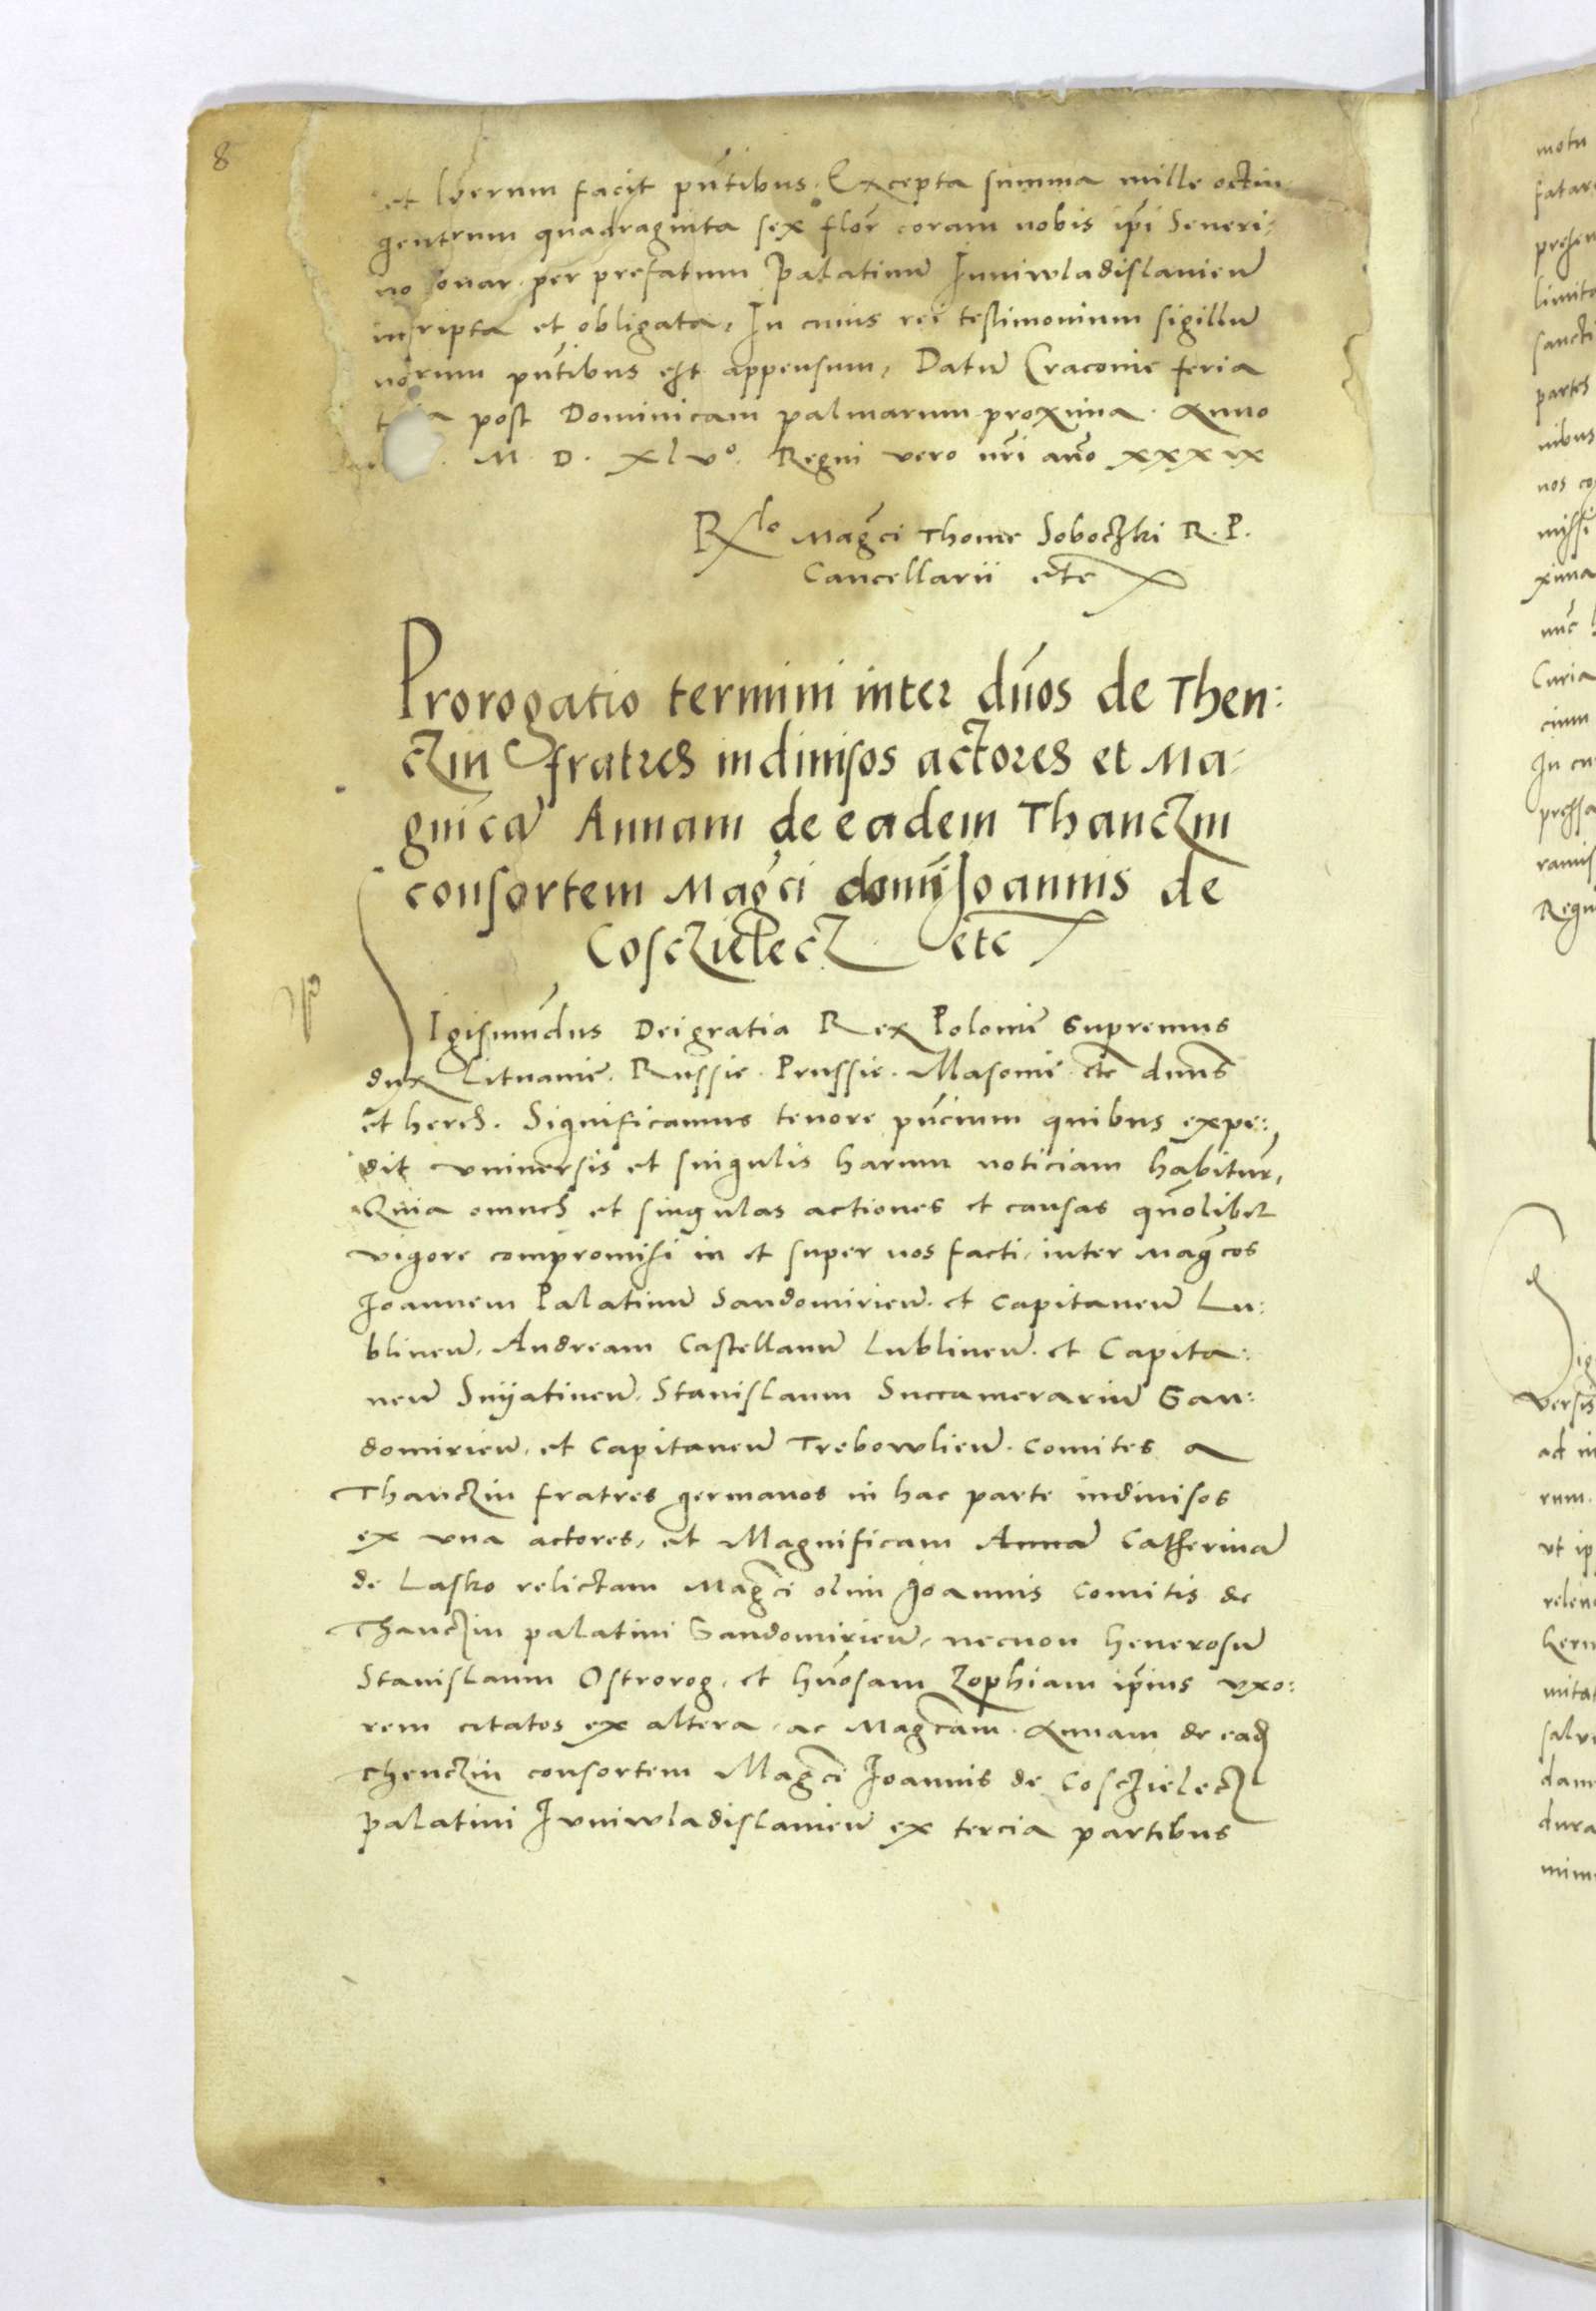 8
et liberum facit pñtibus. Excepta summa mille octin
gentrum quadraginta sex flor̃ coram nobis ip̃i Seueri:
no bonar per prefatum Palatinũ Iuniwladislauieñ
inscripta et obligata, In cuius rei testimonium sigillũ
nõrum pñtibus est appensum, Datũ Cracouie feria
post Dominicam palmarum proxima. Anno
M. D. xlvº. Regni vero ñri año xxxix
Rlo Mag̃ci Thome Soboczki R. P.
Cancellarii etc
Prorogatio termini inter dños de Then:
czin fratres indiuisos actores et Ma-
gnicã Annam de eadem Thanczin
consortem Mag̃ci domĩ Joannis de
Cosczielecz etc
Igismũdus Dei gratia Rex Poloniẽ Supremus
dux Lituaniẽ. Russie. Prussie. Masouiẽ etc dũns
et heres. Significamus tenore pñcium quibus expe:
dit vniuersis et singulis harum noticiam habitur̃,
Quia omnes et singulas actiones et causas quõlibet
vigore compromissi in et super nos facti, inter Mag̃cos
Joannem Palatinũ Sandomirieñ. et Capitaneũ Lu:
blineñ. Andream Castellanũ Lublineñ. et Capita:
neũ Snyatineñ. Stanislaum Succamerariũ San:
domirieñ. et Capitaneũ Trebowlieñ. Comites a
Thanczin fratres germanos in hac parte indiuisos
ex vna actores, et Magnificam Annã Catherinã
de Lasko relictam Mag̃ci olim Joannis Comitis de
Thanczin palatini Sandomirieñ, necnon Henerosũ
Stanislaum Ostrorog. et hũosam Zophiam ip̃ius vxo:
rem citatos ex altera, ac Mag̃cam. Annam de eadẽ
Thenczin consortem Mag̃ci Joannis de Cosczielecz
palatini Iuniwladislauieñ ex tercia partibus